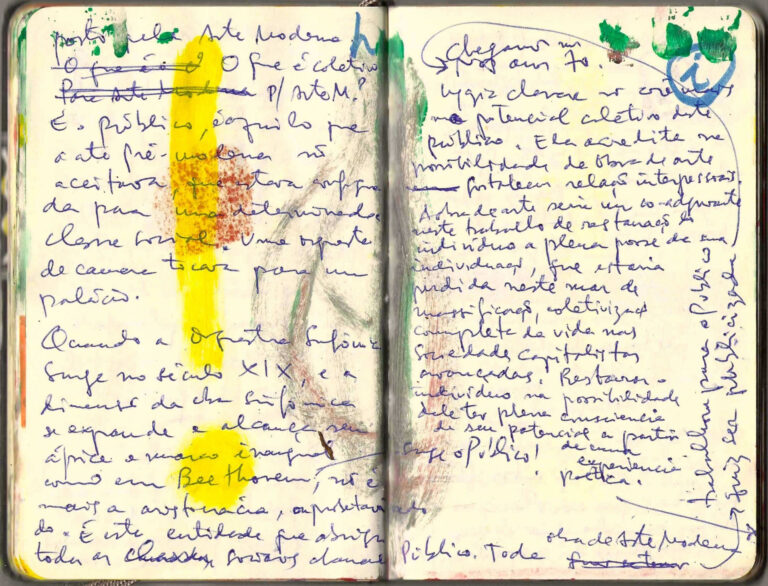 posto pela Arte Moderna.
O que é o O que é coletivo
Para Arte Moderna P/ Arte M.?
É o público, é aquilo que
a arte pré-moderna não
aceitava, que estava
da para uma determinada
classe social. Uma orquestra
de camera tocava para um
palácio.
Quando a Orquestra Sinfônica
surge no século XIX, e a
dimensão da sinfônica
se expande e alcança seu
ápice e marco inaugural
como em Beethoven, não é
mais a aristocracia,
do. É esta entidade que abriga
todas as classes sociais
surge o Público!
Público. Toda obra de Arte Moderna
chegamos no
pros anos 70.
i
Lygia Clark
no potencial coletivo deste
público. Ela acredita na
possibilidade da obra de arte
fortalecer relação interpessoais
A obra de arte seria um co-adjuvante
neste trabalho de restauração do
indivíduo a plena posse de sua
individuação, que estaria
perdida neste mar de
massificação, coletivização
completa da vida nas
sociedades capitalistas
avançadas. Restaura o
indivíduo na possibilidade
dele ter plena consciência
de seu potencial a partir
de uma
experiência
poética.
trabalhou para o Público
quiz ser publicizada